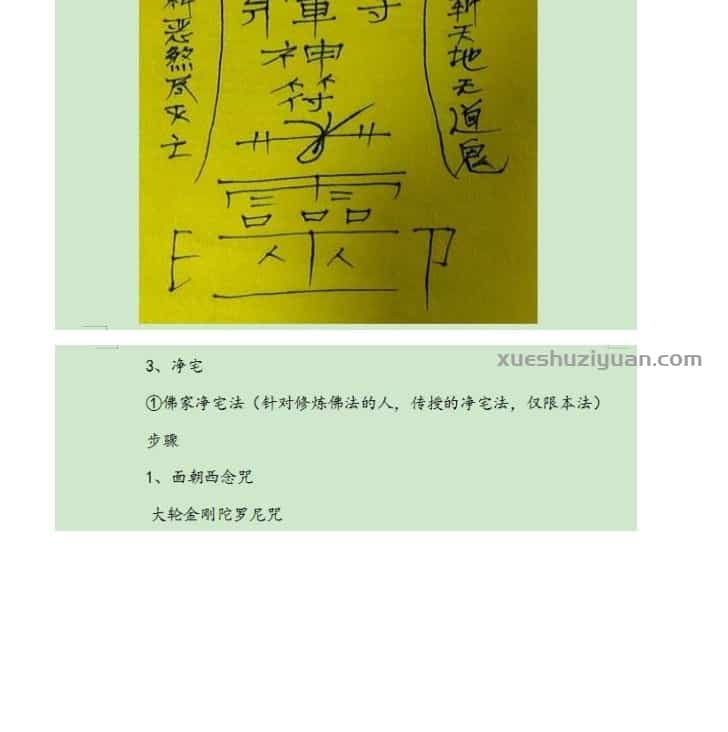 斩天地无道鬼
神符
恶煞尽灭亡
3、净宅
xueshuziyuan.com
①佛家净宅法（针对修炼佛法的人，传授的净宅法，仅限本法）
步骤
1、面朝西念咒
大轮金刚陀罗尼咒